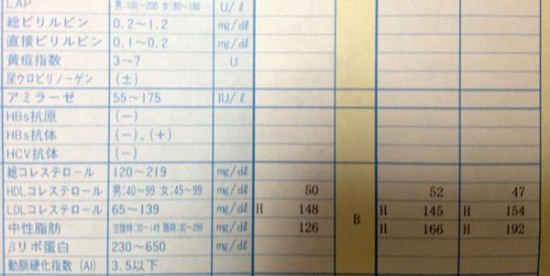 LAP 男:100~200 女:80~180 U/ℓ
総ビリルビン 0.2~1.2 mg/dℓ
直接ビリルビン 0.1~0.2 mg/dℓ
黄疸指数 3~7 U
尿ウロビリノーゲン (±)
アミラーゼ 55~175 IU/ℓ
HBs抗原 (-)
HBs抗体 (-),(+)
HCV抗体 (-)
総コレステロール 120~219 mg/dℓ
HDLコレステロール 男:40~99 女:45~99 mg/dℓ 50 52 47
LDLコレステロール 65~139 mg/dℓ H 148 B H 145 H 154
中性脂肪 mg/dℓ 126 H 166 H 192
βリポ蛋白 230~650 mg/dℓ
動脈硬化指数(AI) 3.5以下